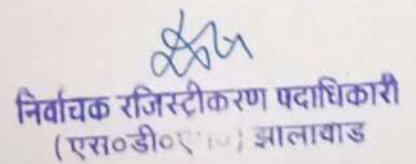 निर्वाचक रजिस्ट्रीकरण पदाधिकारी
(एस०डी० झालावाड